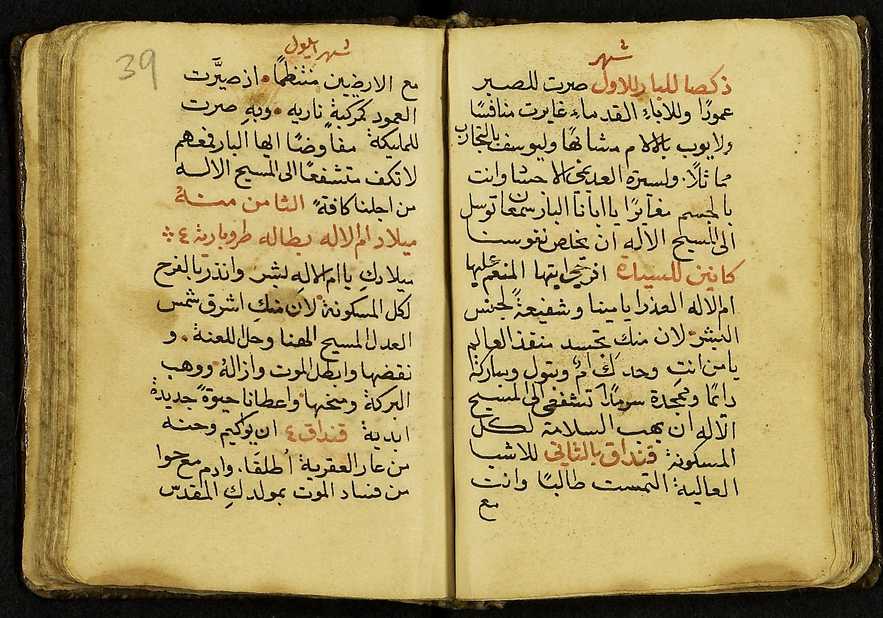 شهر
ذكصا للبار للاول صرت للصبر
عمودًا وللاباء القدماء غايرت منافسًا
ولايوب بالالام مشابهًا وليوسف بالتجارب
مماثلًا. ولسيرة العديمي الاجساد وانت
بالجسم مغايرًا يا ابانا البار سمعان توسل
الى المسيح الاله ان يخلص نفوسنا
كانين للسيدة افرحي ايتها المنعم عليها
ام الاله العذرا يا مينا وشفيعةً لجنس
البشر لان منك تجسد منقذ العالم
يا من انتِ وحدكِ امٌ وبتول ومباركة
دائمًا وممجدة سرمدًا تشفعي الى المسيح
الاله ان يهب السلامة لكل
المسكونة قنداق بالثاني للاشيا
العالية التمست طالبًا وانت
مع
شهر ايلول
39
مع الارضيين منتظمًا. اذ صيَّرت
العمود كمركبةٍ ناريه. وبهِ صرت
للمليكة مفاوضًا ايها البار فمعهم
لا تكف متشفعًا الى المسيح الاله
من اجلنا كافةً الثامن منهُ
ميلاد ام الاله بطاله طروبارية ٤
ميلادكِ يا ام الاله بشر وانذر بالفرح
لكل المسكونة لان منكِ اشرق شمس
العدل المسيح الهنا وحل اللعنة. و
نقضها وابطل الموت وازالهُ ووهب
البركة ومنحها واعطانا حيوةً جديدة
ابدية قنداق ٤ ان يواكيم وحنه
من عار العقرية اُطلقا. وادم مع حوا
من فساد الموت بمولدكِ المقدس